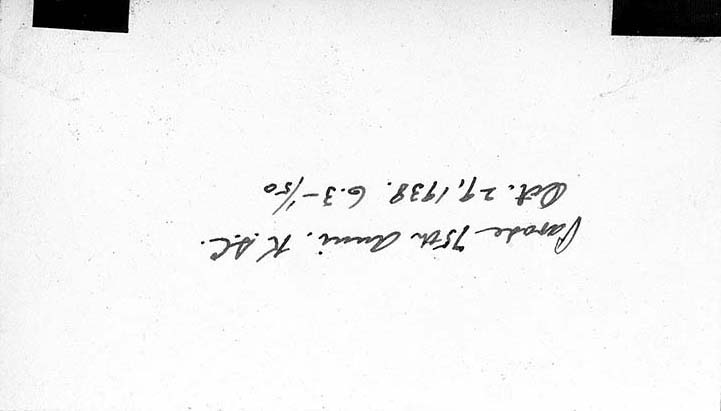 Parade 75th Anni. K.S.C.
Oct. 29, 1938. 6.3 - 1/50